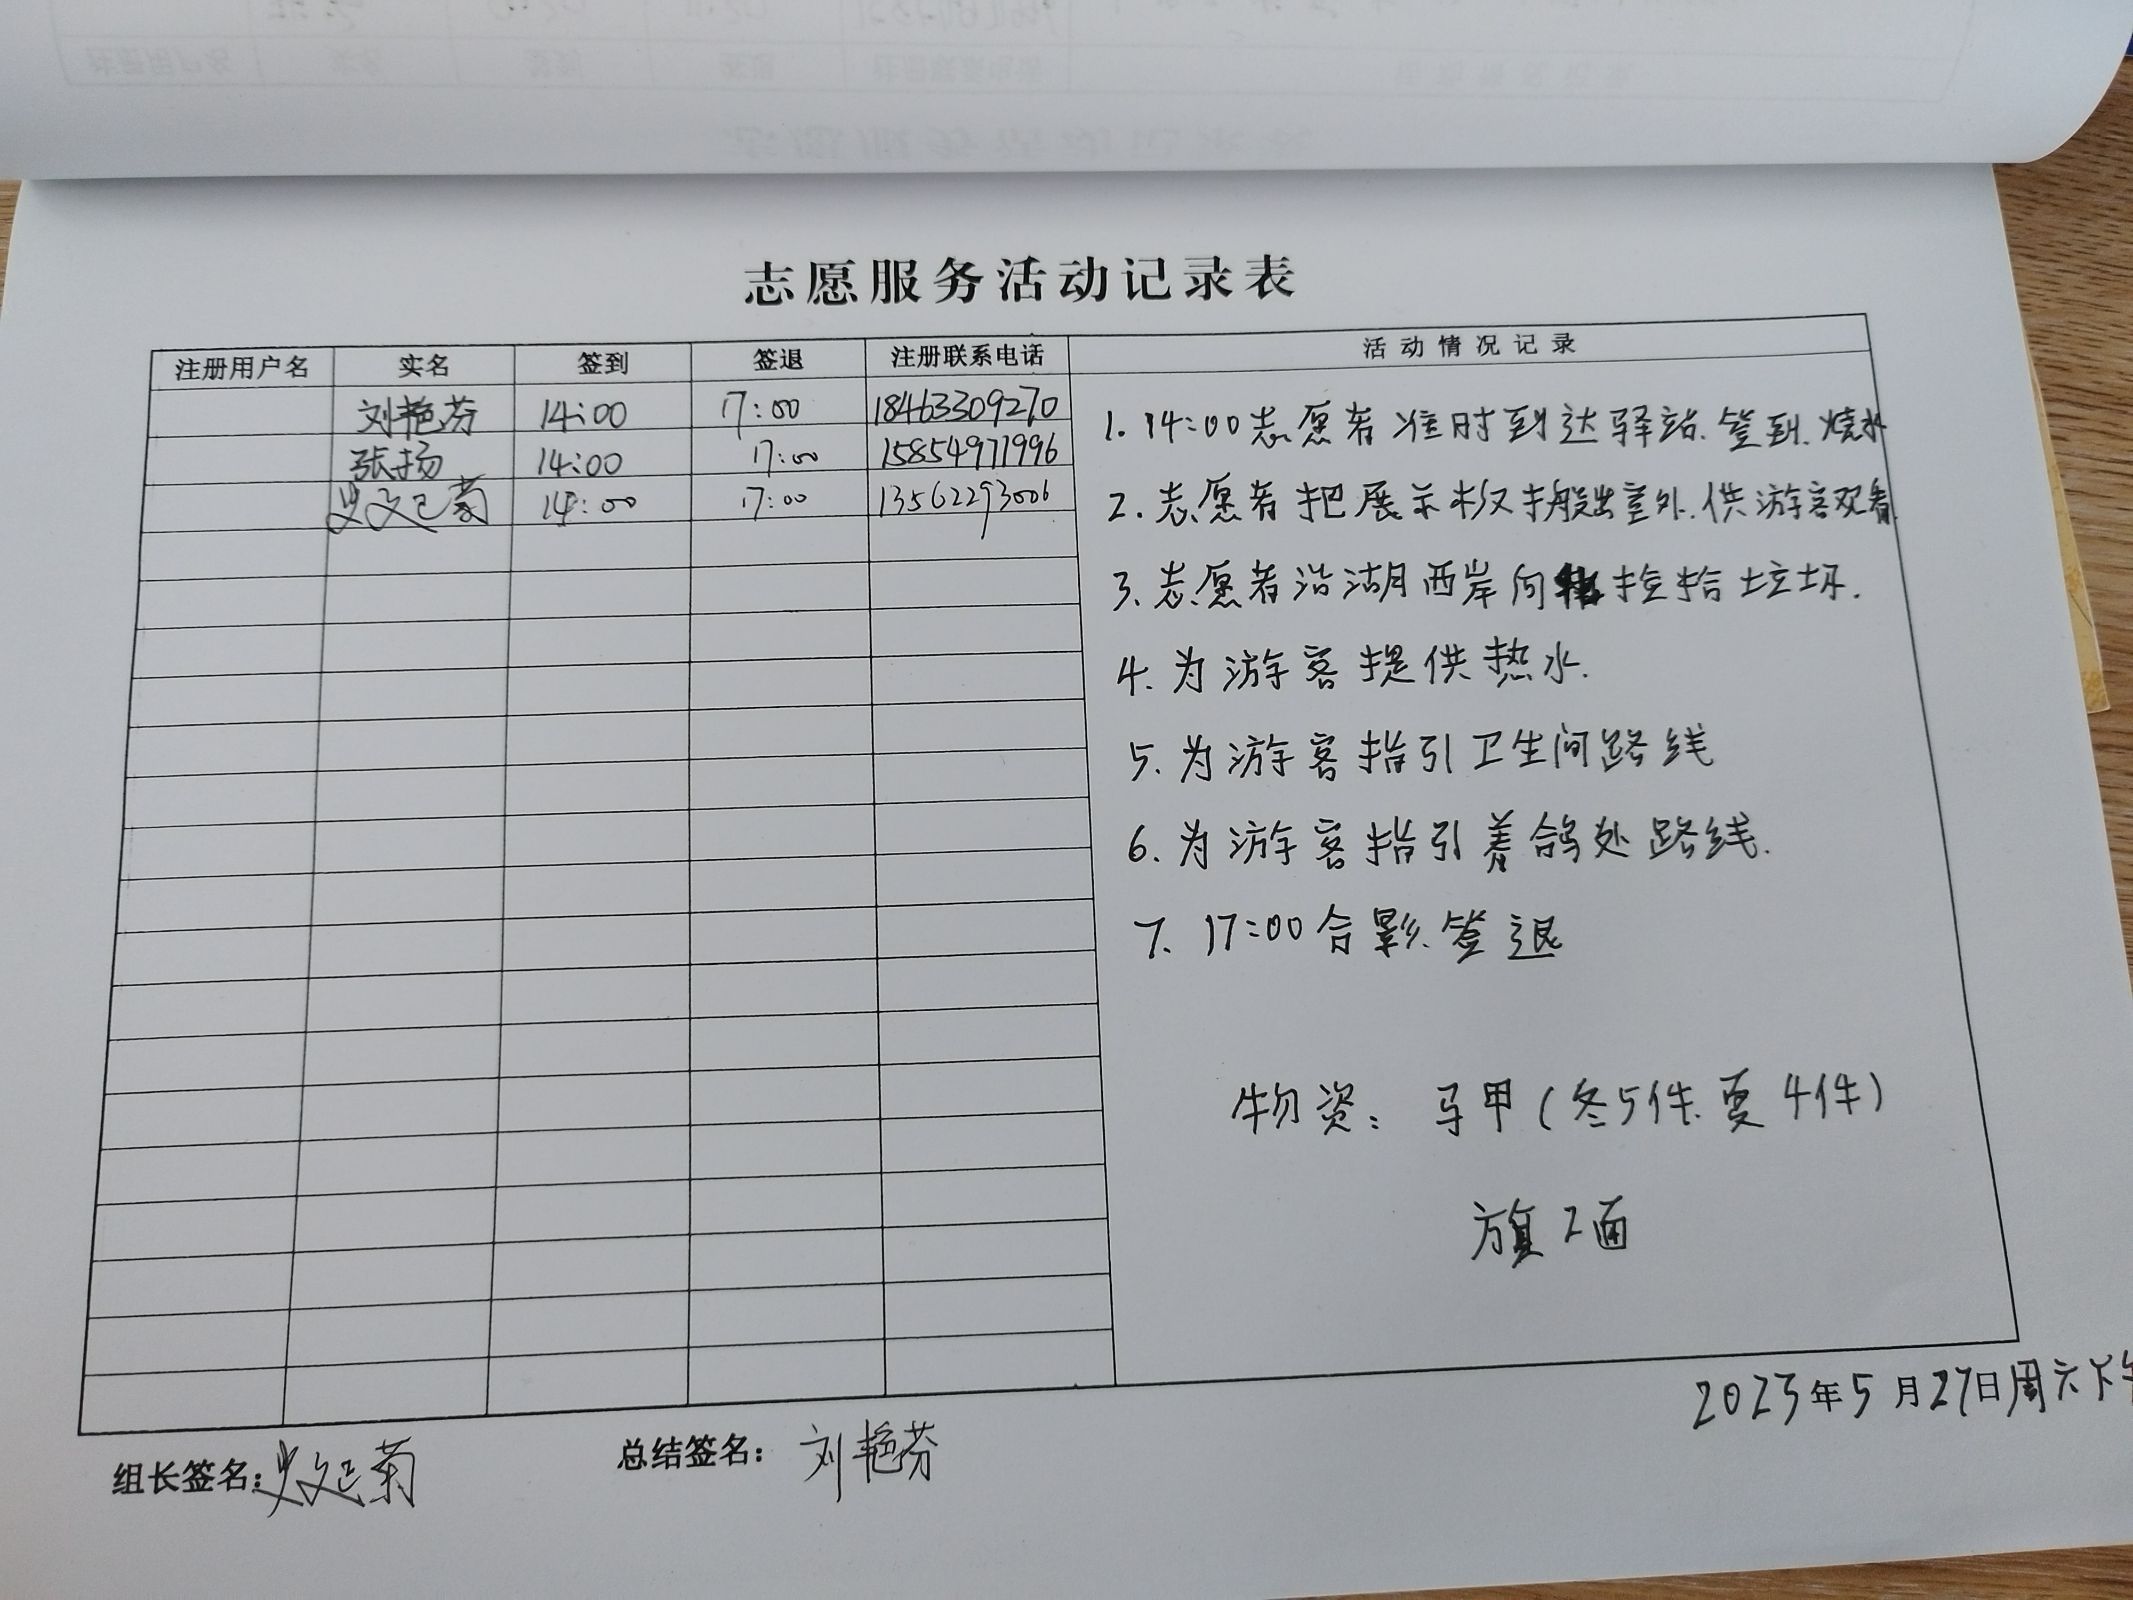 志愿服务活动记录表
注册用户名 实名 签到 签退 注册联系电话 活动情况记录
刘艳芬 14:00 17:00 18463309270
张扬 14:00 17:00 15854971996
14:00 17:00 13562293006
1. 14:00志愿者准时到达驿站.签到.烧水
2. 志愿者把展示板搬出室外.供游客观看
3. 志愿者沿湖西岸向捡拾垃圾.
4. 为游客提供热水.
5. 为游客指引卫生间路线
6. 为游客指引养鸽处路线.
7. 17:00合影.签退
物资: 马甲(冬5件.夏4件)
旗2面
2023年5月27日周六下午
组长签名:
总结签名: 刘艳芬